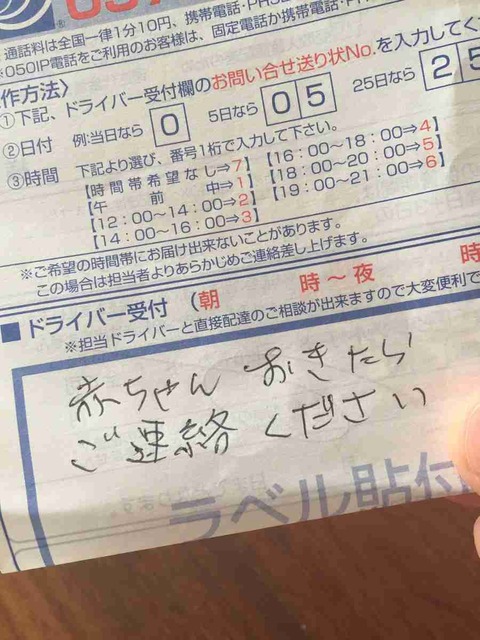 通話料は全国一律1分10円、携帯電話・PHS
※050IP電話をご利用のお客様は、固定電話か携帯電話・PH
作方法〉
①下記、ドライバー受付欄のお問い合せ送り状No.を入力してく
②日付 例:当日なら 0 5日なら 05 25日なら 25
③時間 下記より選び、番号1桁で入力して下さい。
【時間帯希望なし⇒7】 【16:00~18:00⇒4】
【午前中⇒1】 【18:00~20:00⇒5】
【12:00~14:00⇒2】 【19:00~21:00⇒6】
【14:00~16:00⇒3】
※ご希望の時間帯にお届け出来ないことがあります。
この場合は担当者よりあらかじめご連絡差し上げます。
■ドライバー受付 (朝 時~夜 時
※担当ドライバーと直接配達のご相談が出来ますので大変便利で
赤ちゃん おきたら
ご連絡ください
ラベル貼付